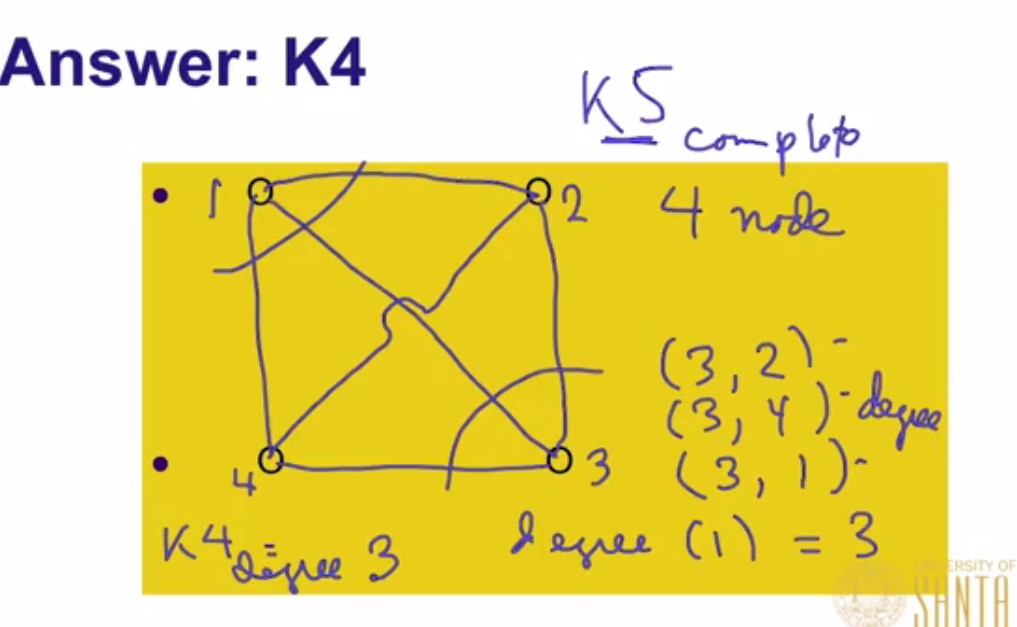 Answer: K4
K5
complete
1
2
4 node
(3, 2) -
(3, 4) - degree
(3, 1) -
4
3
K4 - degree 3
degree (1) = 3
UNIVERSITY OF
SANTA